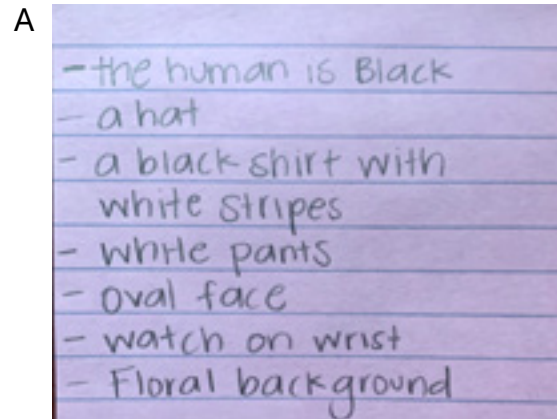 A
- the human is Black
- a hat
- a black shirt with
white stripes
- white pants
- oval face
- watch on wrist
- Floral background